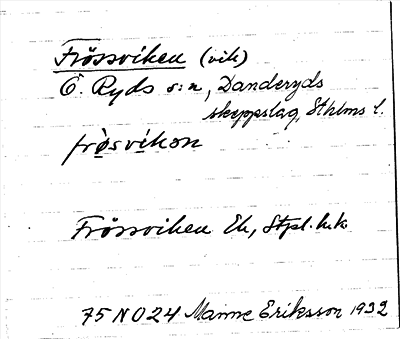 Frössviken (vik)
Ö. Ryds s:n, Danderyds
skeppslag, Sthlms l.
frösvikọn
Frössviken Ek, Stpl. bl.
75 NO24 Manne Eriksson 1932